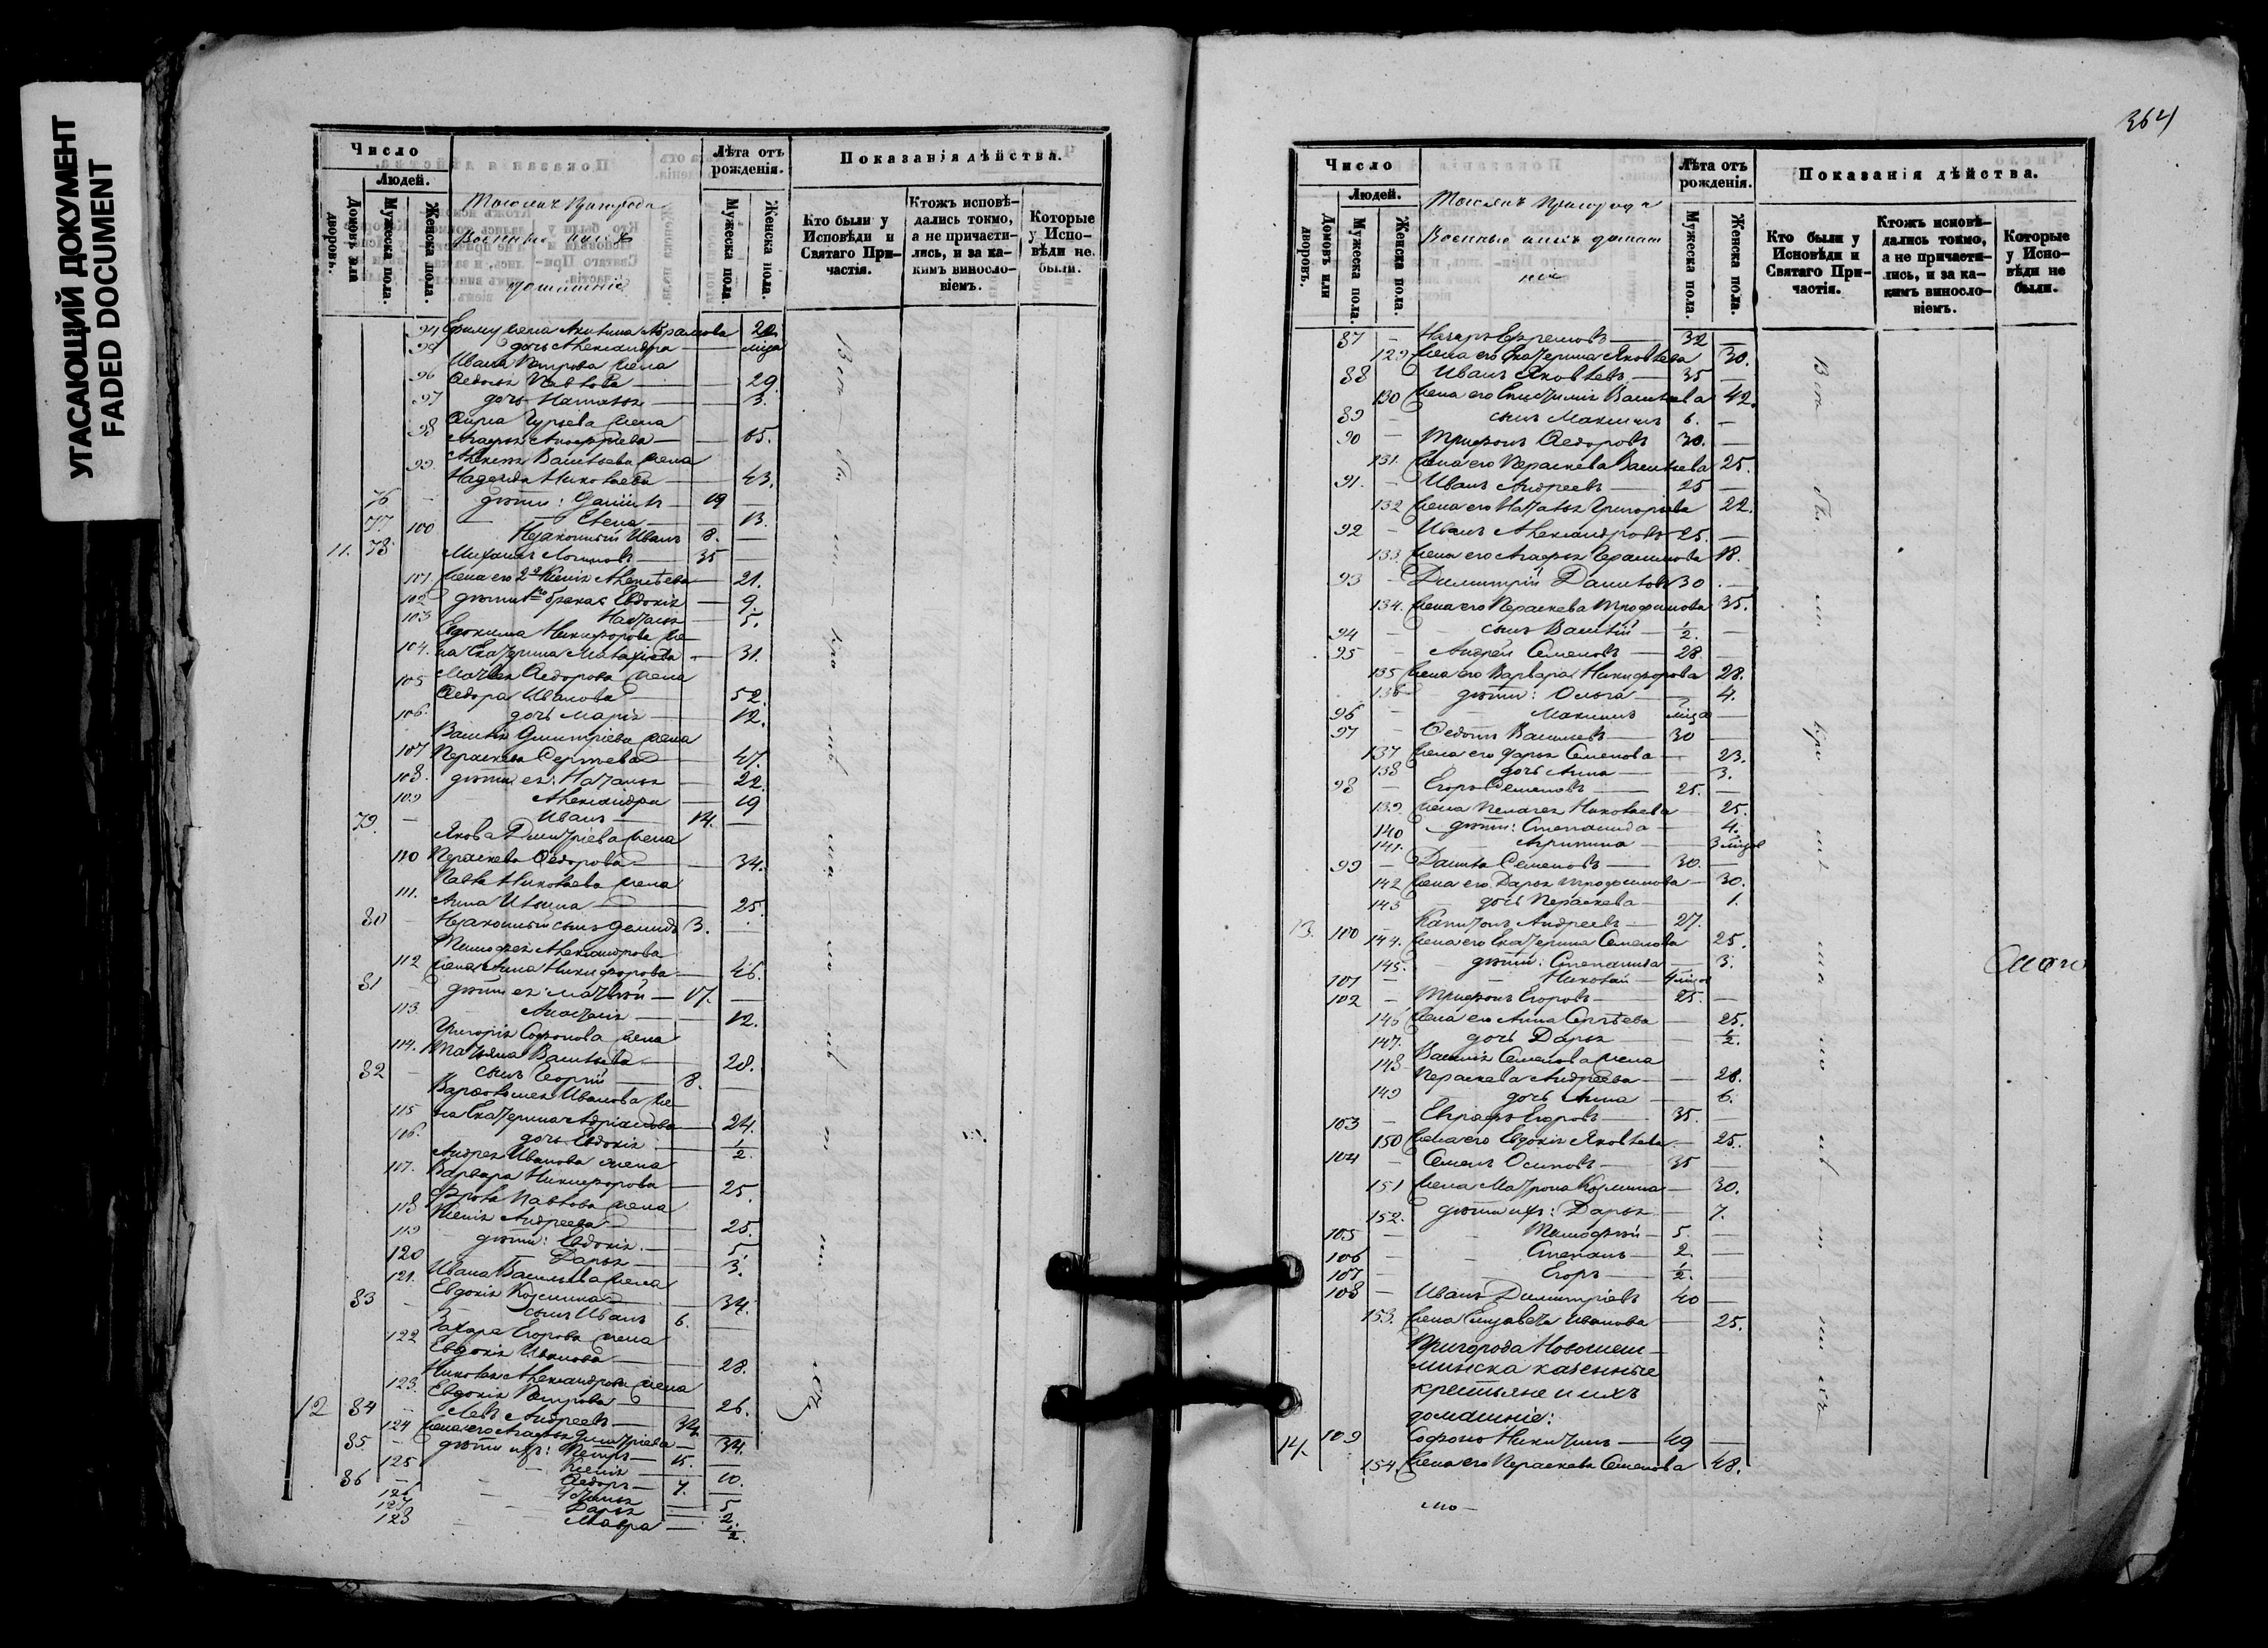 УГАСАЮЩИЙ ДОКУМЕНТ
FADED DOCUMENT
Число
Людей.
Домовъ или дворовъ.
Мужеска пола.
Женска пола.
Военные и ихъ
домашніе
Лѣта отъ рожденія.
Мужеска пола
Женска пола.
Показанія дѣйства.
Кто были у Исповѣди и Святаго Причастія.
Ктожъ исповѣдались токмо, а не причастились, и за какимъ винословіемъ.
Которые у Исповѣди не были.
94 жена Акилина Абрамова — 20.
95 дочь Александра — мѣца
Ивана Петрова жена
96 Ѳедосья Павлова — 29.
97 дочь Наталья — 3.
Гурьева жена
98 Агафья — 65.
Алексѣя Васильева жена
99. Надежда Николаева — 43.
76 – дѣти: Даніилъ — 19 —
77 100 Елена — 13.
Незаконный Иванъ 8. —
11. 78 Михаилъ Логиновъ — 35 —
101 жена его 2я Ксенія Алексѣева — 21.
102 дѣти 1го брака: Евдокія — 9.
103 Наталья — 5.
Евдокима Никифорова же-
104. на Екатерина — 31.
Матвея Ѳедорова жена
105 Ѳедора Иванова — 52.
106. дочь Марія — 12.
Василія Дмитріева жена
107 Пераскева Сергѣева — 47.
108. дѣти ея: Наталья — 22.
109 Александра — 19
79. – Иванъ — 14. —
Якова Димитріева жена
110 Пераскева Ѳедорова — 34.
Павла Николаева жена
111. Анна Ильина — 25.
80 – Незаконный сынъ Демидъ 3. —
Тимофея Александрова
112 жена Анна Никифорова — 46.
81 – дѣти ея: Матвѣй — 17. —
113. Анастасія — 12.
Григорія Софронова жена
114. Татьяна Васильева — 28.
82 – сынъ Георгій — 8. —
Варфоломея Иванова же-
115 на Екатерина Адріанова — 24.
116. дочь Евдокія — 1/2.
Андрея Иванова жена
117. Варвара Никифорова — 25.
Фрола Павлова жена
118 Ксенія Андреева — 25.
119 дѣти: Евдокія — 5.
120 Дарья — 3.
Ивана Васильева жена
121. Евдокія Козмина — 34.
83 – сынъ Иванъ 6. —
Захара Егорова жена
122 Евдокія Иванова — 28.
Николая Александрова жена
123. Евдокія Петрова — 26.
12 84 – Левъ Андреевъ — 34. —
124 жена его Агафья Димитріева — 34.
85. – дѣти ихъ: Петръ — 15. —
125 Ксенія — 10.
86 – Ѳедоръ — 7. —
126 — 5.
127 Дарья — 2.
128 Мавра — 1/2.
364
Число
Людей.
Домовъ или дворовъ.
Мужеска пола.
Женска пола.
Военные и ихъ домаш
ніе
Лѣта отъ рожденія.
Мужеска пола.
Женска пола.
Показанія дѣйства.
Кто были у Исповѣди и Святаго Причастія.
Ктожъ исповѣдались токмо, а не причастились, и за какимъ винословіемъ.
Которые у Исповѣди не были.
87 – Назаръ Ефремовъ — 32 —
129 жена его Екатерина Яковлева 30.
88 Иванъ Яковлевъ — 35 —
130 жена его Васильева 42.
89 – сынъ Максимъ 6. —
90 – Трифонъ Ѳедоровъ 30. —
131. жена его Пераскева Васильева 25.
91. – Иванъ Андреевъ — 25 —
132 жена его Наталья Григорьева 22.
92 – Иванъ Александровъ 25. —
133 жена его Агафья Герасимова 18.
93 – Димитрій Даниловъ 30. —
134. жена его Пераскева Трофимова 35.
94 – сынъ Василій — 1/2. —
95 – Андрей Семеновъ — 28. —
135 жена его Варвара Никифорова 28.
136 дѣти: Ольга — 4.
96 – Максимъ мѣца —
97 – Ѳедотъ Васильевъ — 30 —
137 жена его Дарья Семенова — 23.
138 дочь Анна — 3.
98 – Егоръ Семеновъ — 25. —
139. жена Пелагея Николаева 25.
140 дѣти: Степанида — 4.
141. Агрипина — 3 мѣцов
99 – Данила Семеновъ — 30. —
142 жена его Дарья Трофимова — 30.
143 дочь Пераскева — 1.
13. 100 – Капитонъ Андреевъ — 27.
144. жена его Екатерина Семенова 25.
145. дѣти: Степанида — 3.
101 – Николай — 4 мѣцов
102 – Трифонъ Егоровъ — 25. —
146 жена его Анна Сергѣева 25.
147. дочь Дарья — 1/2.
Василія Семенова жена
148 Пераскева Андреева — 28.
149 дочь Анна — 6.
103 – Евграфъ Егоровъ — 35. —
150 жена его Евдокія Яковлева — 25.
104 – Семенъ Осиповъ — 35 —
151 жена Матрона Козмина — 30.
152. дѣти ихъ: Дарья — 7.
105 – Тимофѣй — 5. —
106 – Степанъ — 2. —
107 – Егоръ — 1/2. —
108 – Иванъ Димитріевъ 40 —
153. жена Елизавета Иванова — 25.
Пригорода Новошеш-
минска казенные
крестьяне и ихъ
домашніе:
14. 109 Софронъ Никитинъ — 49 —
154. жена его Пераскева Семенова 48.